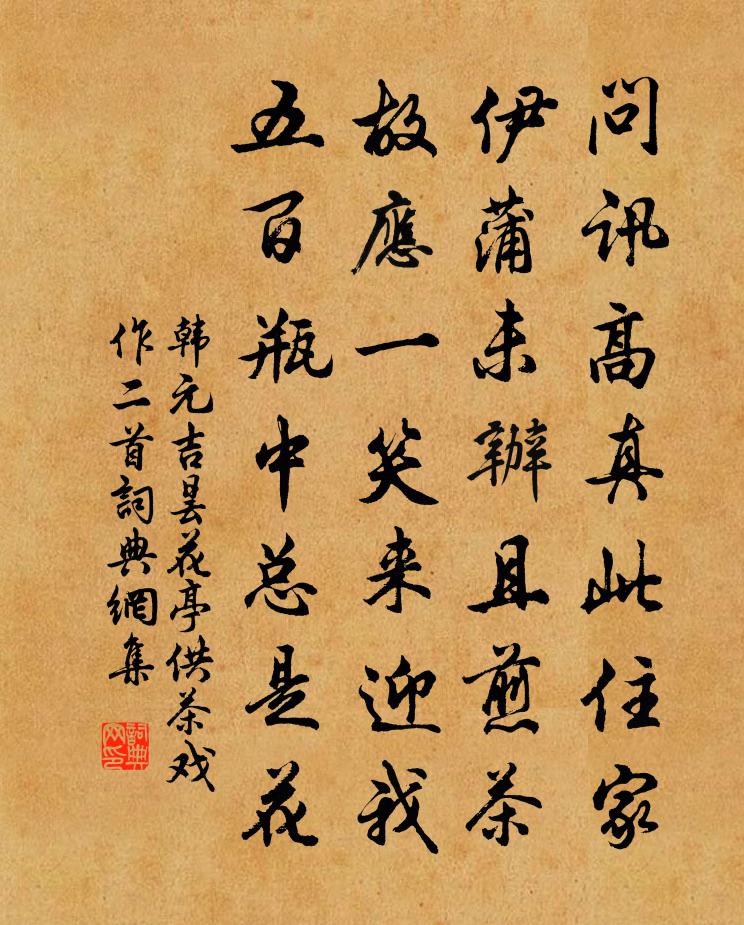 問訊高真此住家
伊蒲未辦且煎茶
故應一笑来迎我
五百瓶中总是花
韩元吉昙花亭供茶戏
作二首詞典網集
詞典
网印